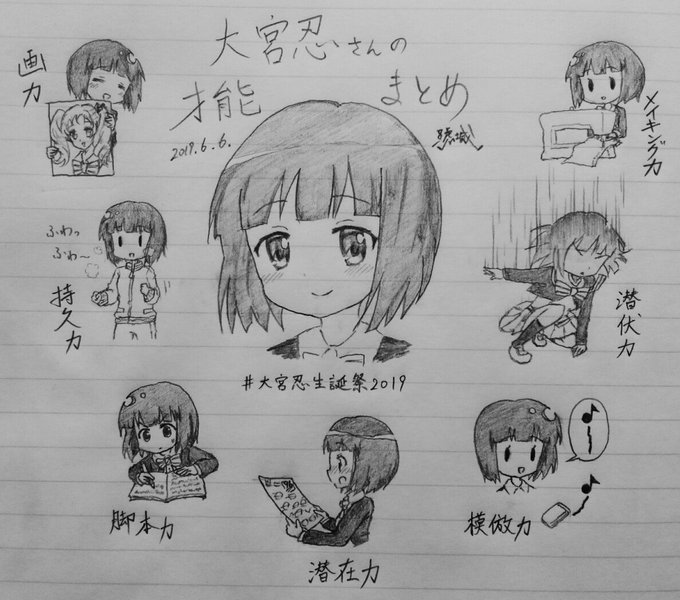 大宮忍さんの
才能まとめ
2019.6.6.
画力
メイキング力
ふわっ
ふわ〜
持久力
潜伏力
#大宮忍生誕祭2019
脚本力
潜在力
模倣力